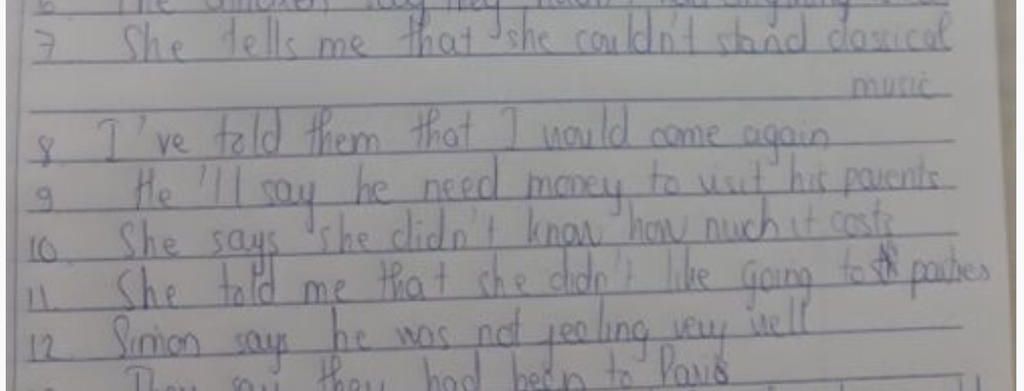 7 She tells me that she couldn't stand classical
music
8 I've told them that I would come again
9 He'll say he need money to visit his parents
10. She says she didn't know how much it costs
11 She told me that she didn't like going to parties
12 Simon says he was not feeling very well
They say they had been to Paris